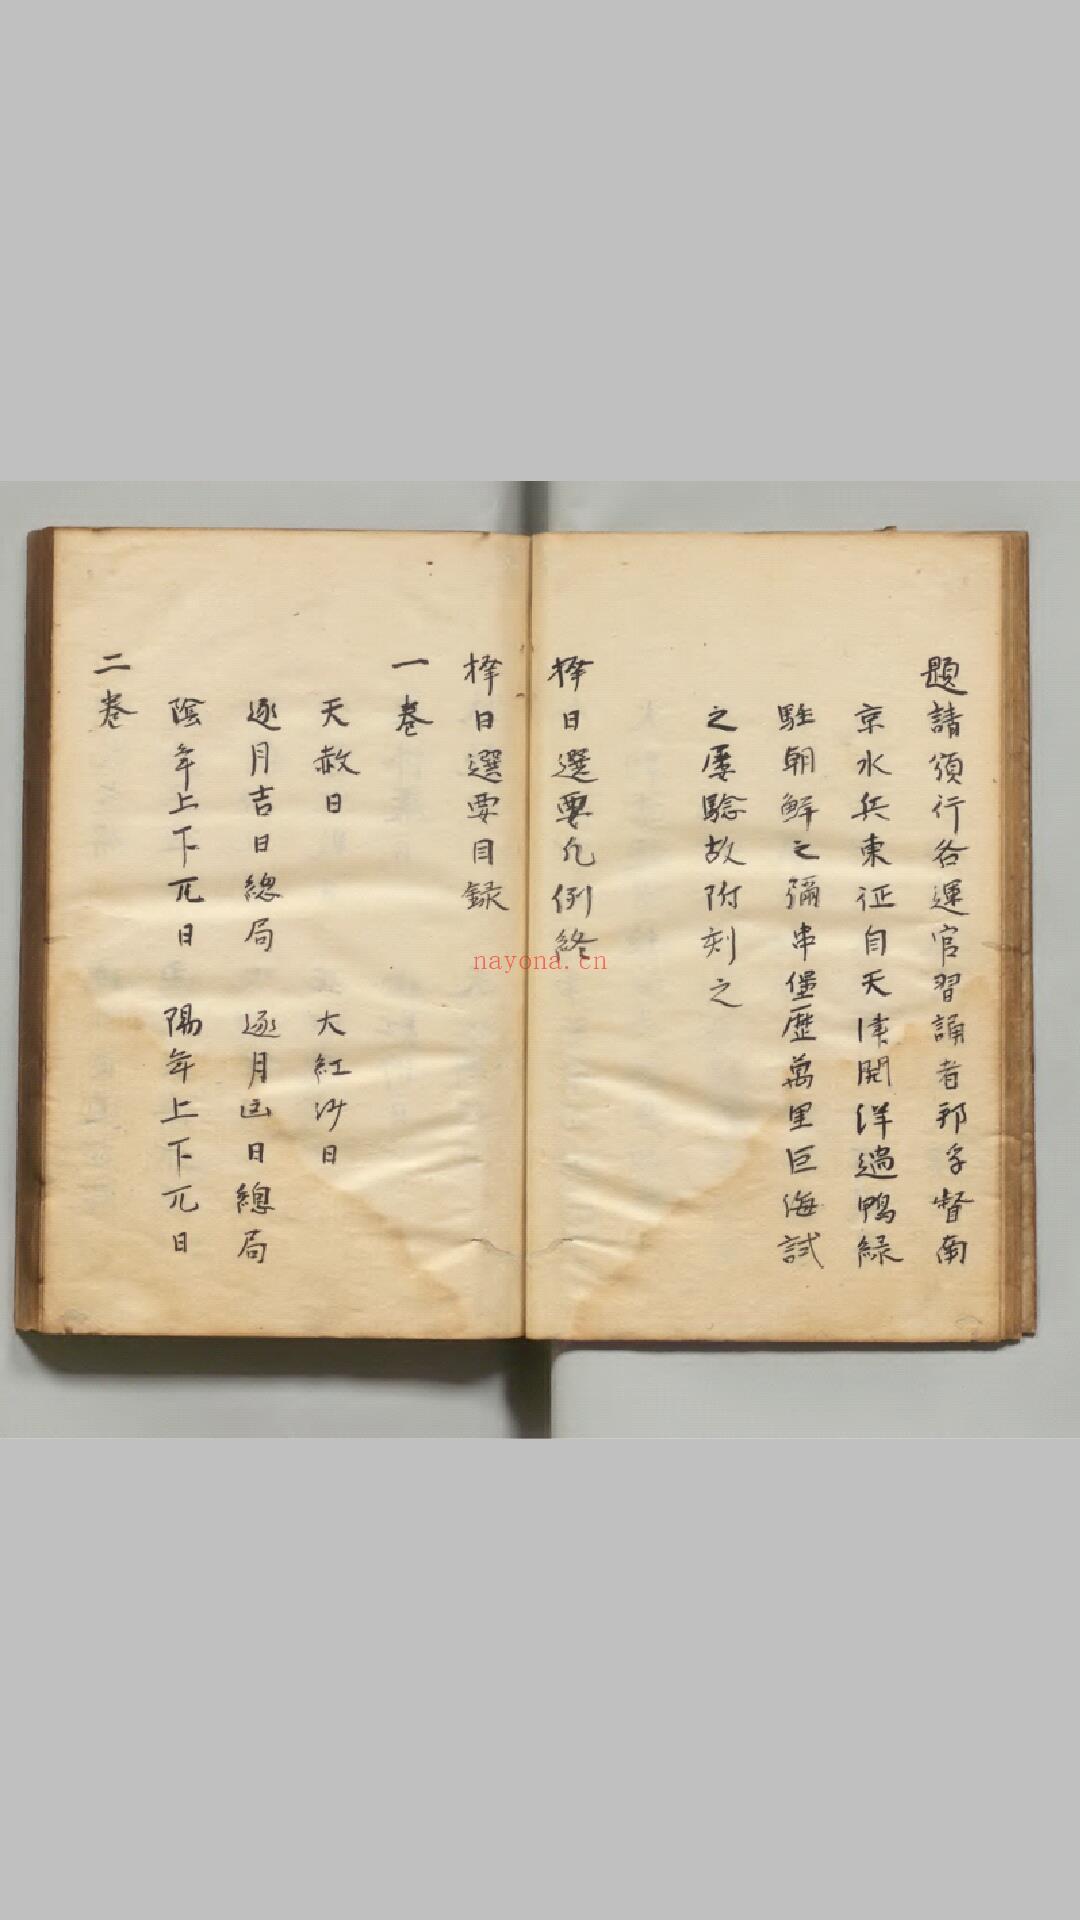 題請頒行各運官習誦者邢子督南
京水兵東征自天津開洋過鴨綠
駐朝鮮之彌串堡歷萬里巨海試
之屢驗故附刻之
择日選要凡例終
择日選要目録
一卷
天赦日 大紅沙日
逐月吉日總局 逐月凶日總局
陰年上下兀日 陽年上下兀日
二卷
nayona.cn